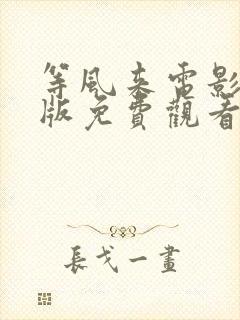 等風來電影
版免費觀看
長戈一畫